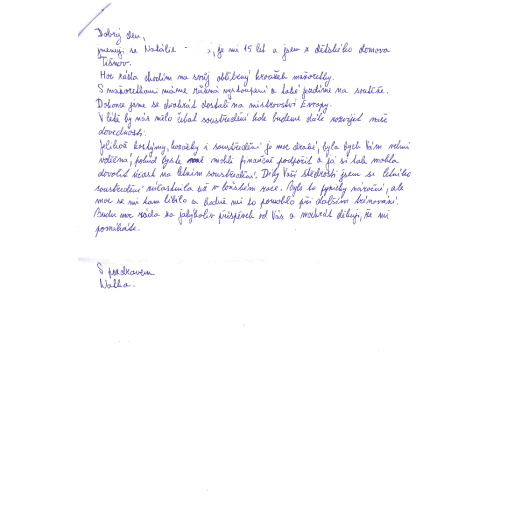 Dobrý den,
jmenuji se Natálie - , je mi 15 let a jsem z dětského domova
Tišnov.
Moc ráda chodím na svůj oblíbený kroužek mažoretky.
S mažoretkami máme různá vystoupení a také jezdíme na soutěže.
Dokonce jsme se dvakrát dostali na mistrovství Evropy.
V létě by nás mělo čekat soustředění kde budeme dále rozvíjet naše
dovednosti.
Jelikož kostýmy, kozačky i soustředění je moc drahé, byla bych Vám velmi
vděčná, pokud byste mně mohli finančně podpořit a já si tak mohla
dovolit účast na letním soustředění. Díky Vaší štědrosti jsem se letního
soustředění zúčastnila už v loňském roce. Bylo to fyzicky náročné, ale
moc se mi tam líbilo a hodně mi to pomohlo při dalším trénování.
Budu moc ráda za jakýkoliv příspěvek od Vás a mockrát děkuji, že mi
pomáháte.
S pozdravem